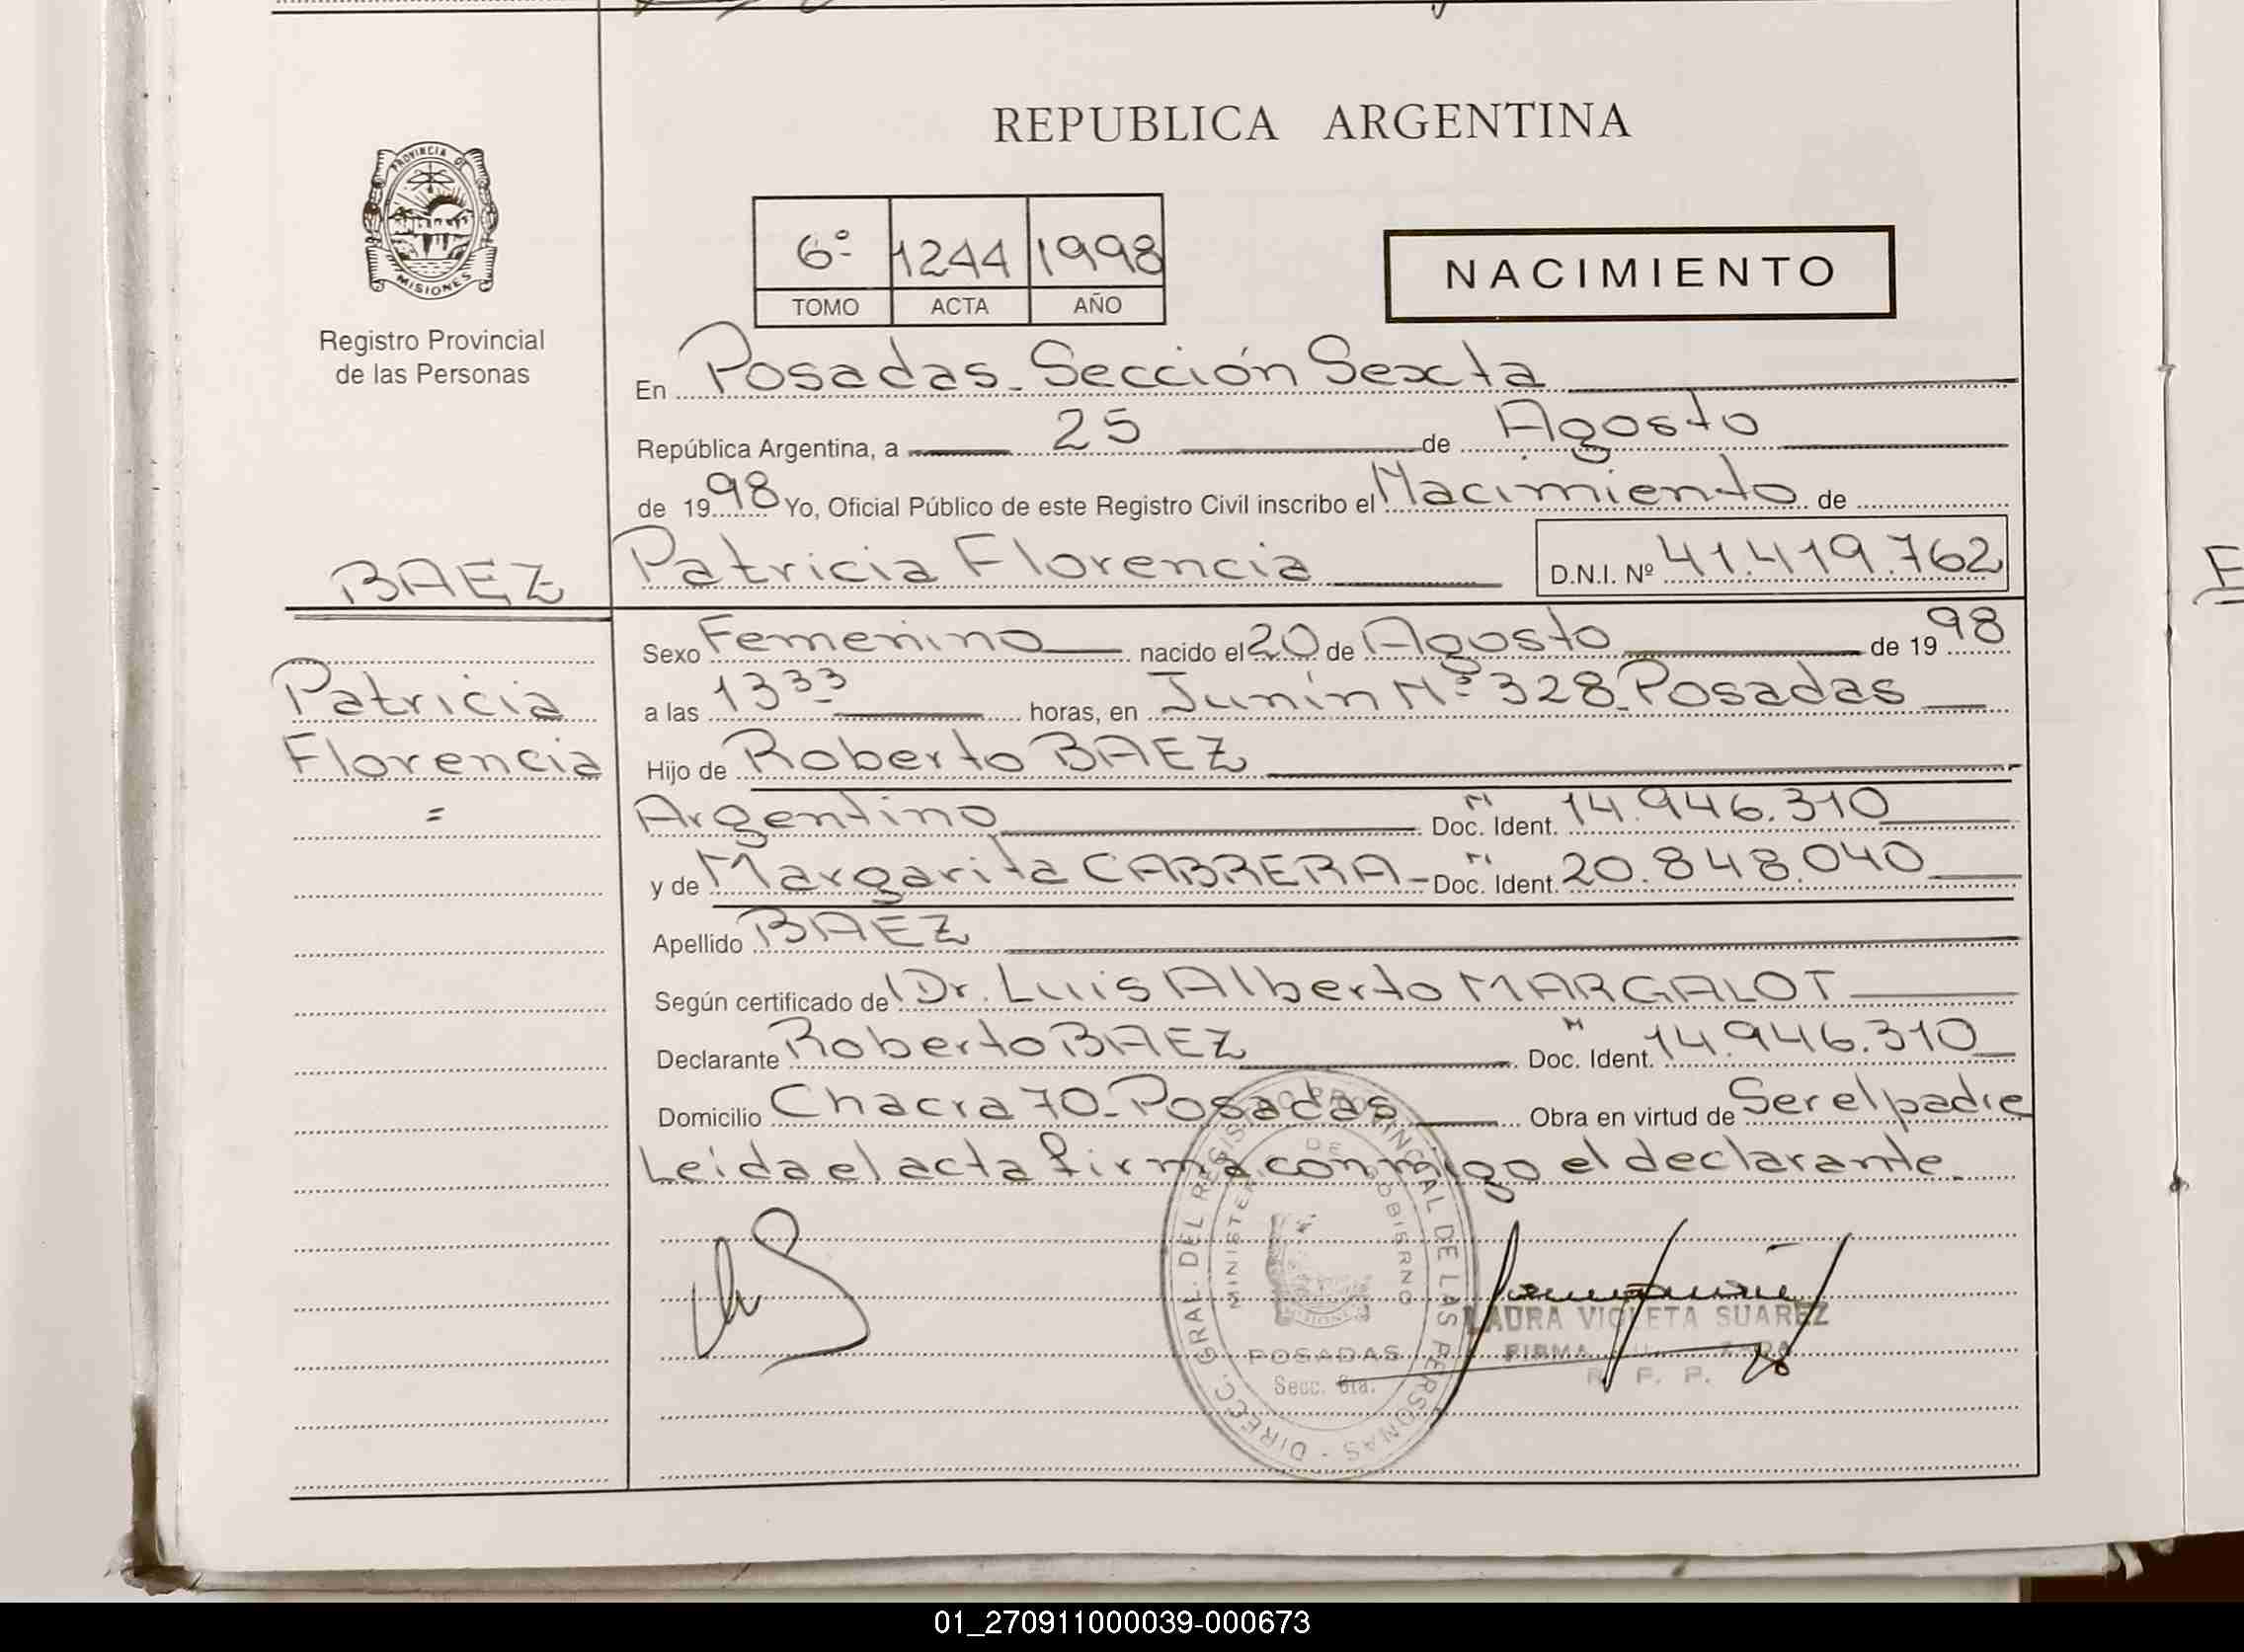 REPUBLICA ARGENTINA
PROVINCIA DE
MISIONES
Registro Provincial
de las Personas
6º 1244 1998
TOMO ACTA AÑO
NACIMIENTO
En Posadas - Sección Sexta
República Argentina, a 25 de Agosto
de 1998 Yo, Oficial Público de este Registro Civil inscribo el Nacimiento de
BAEZ
Patricia Florencia D.N.I. Nº 41.419.762
Sexo Femenino nacido el 20 de Agosto de 1998
Patricia
Florencia
=
a las 13 33 horas, en Junín Nº 328 - Posadas
Hijo de Roberto BAEZ
Argentino Doc. Ident. 14.946.310
y de Margarita CABRERA - Doc. Ident. 20.848.040
Apellido BAEZ
Según certificado de Dr. Luis Alberto MARGALOT
Declarante Roberto BAEZ Doc. Ident. 14.946.310
Domicilio Chacra 70 - Posadas Obra en virtud de Ser el padre
Leída el acta firma conmigo el declarante.
DIRECC. GRAL. DEL REGISTRO PROVINCIAL DE LAS PERSONAS
MINISTERIO DE GOBIERNO
POSADAS
Secc. 6ta.
LAURA VIOLETA SUAREZ
FIRMA
R. P. P.
01_270911000039-000673